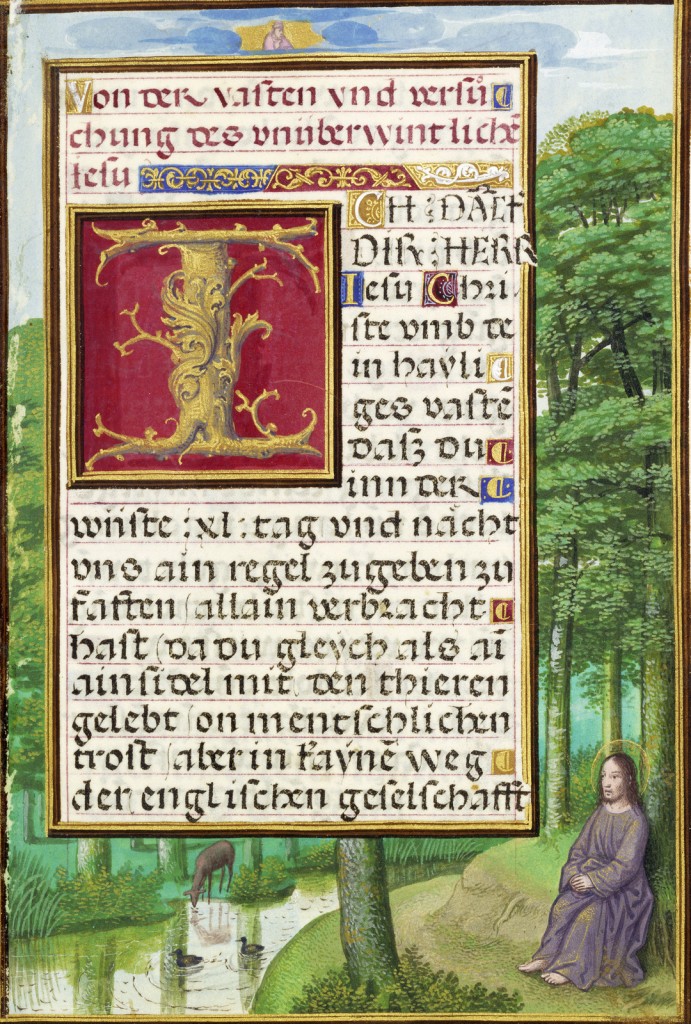 Von der vasten vnd versů
chung des vnüberwintlichē
Iesu
ICH : DĀCK
DIR : HERR
Iesu Chri
ste vmb de
in hayli
ges vastē
dasz du
inn der
wüste :xl: tag vnd nacht
vns ain regel zugeben zu
fasten (allain verbracht
hast (da du gleych als aī
ainsidel mit den thieren
gelebt (on mentschlichen
trost (aber in kaynē weg
der englischen geselschafft